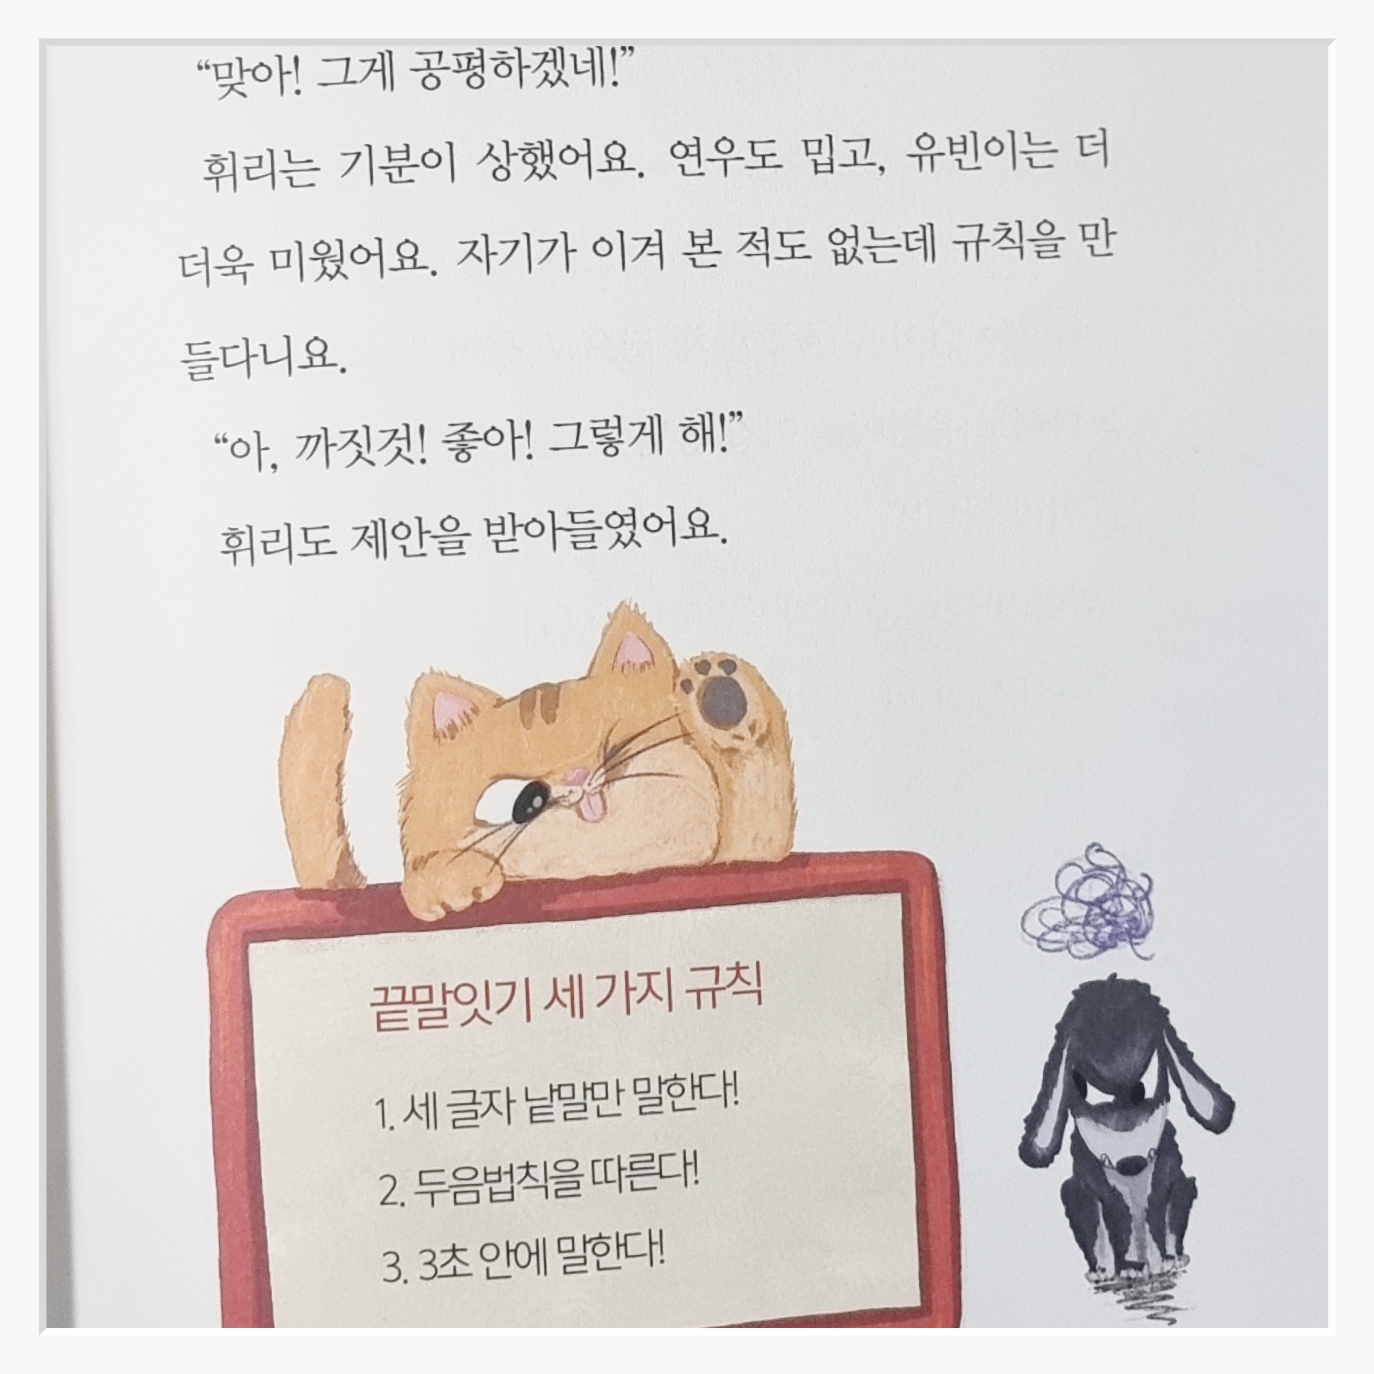 “맞아! 그게 공평하겠네!”
휘리는 기분이 상했어요. 연우도 밉고, 유빈이는 더
더욱 미웠어요. 자기가 이겨 본 적도 없는데 규칙을 만
들다니요.
“아, 까짓것! 좋아! 그렇게 해!”
휘리도 제안을 받아들였어요.
끝말잇기 세 가지 규칙
1. 세 글자 낱말만 말한다!
2. 두음법칙을 따른다!
3. 3초 안에 말한다!